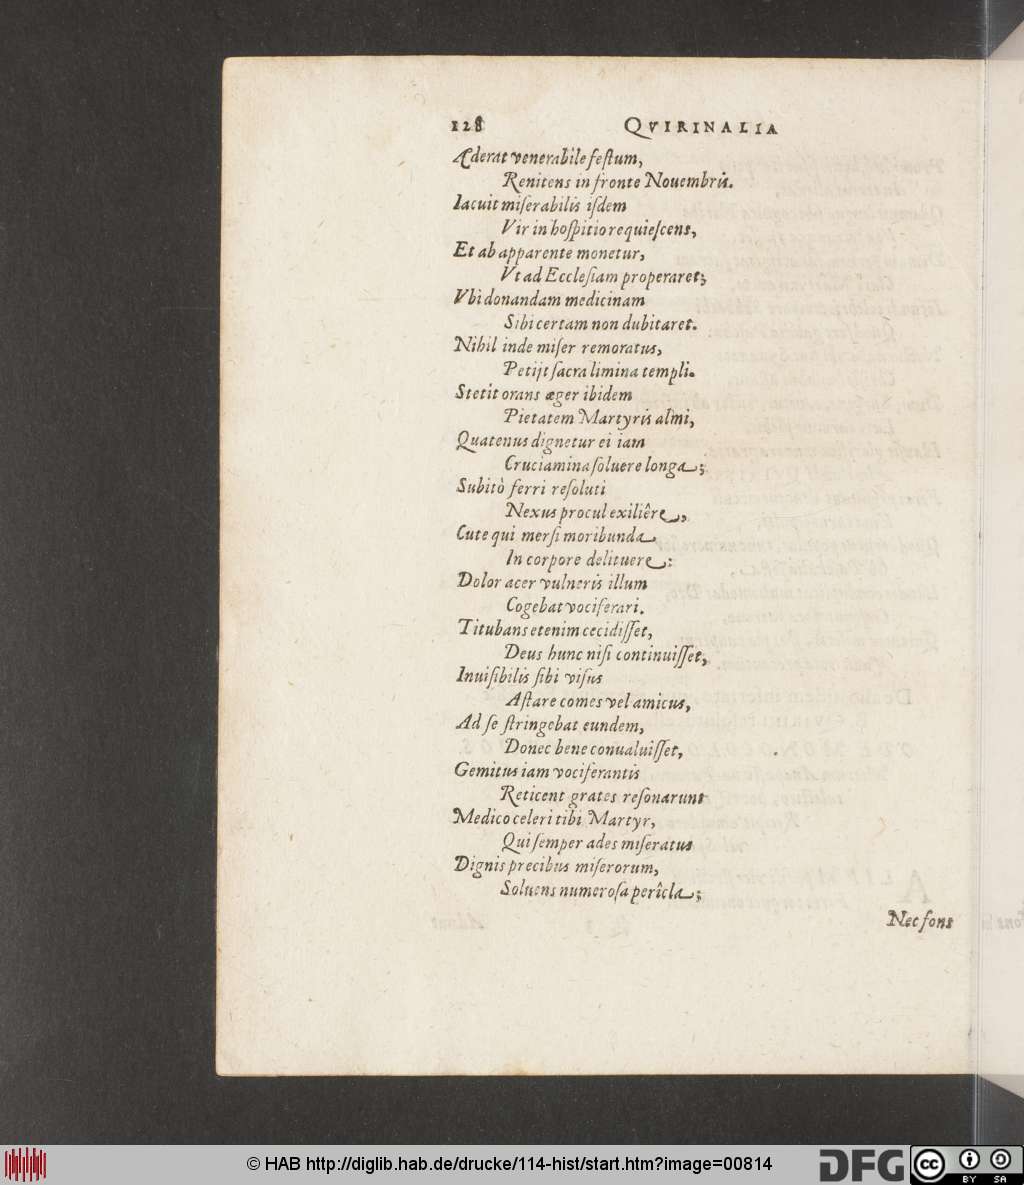 128 QVIRINALIA
Æderat venerabile festum,
Renitens in fronte Nouembris.
Iacuit miserabilis isdem
Vir in hospitio requiescens,
Et ab apparente monetur,
Vt ad Ecclesiam properaret;
Vbi donandam medicinam
Sibi certam non dubitaret.
Nihil inde miser remoratus,
Petijt sacra limina templi.
Stetit orans æger ibidem
Pietatem Martyris almi,
Quatenus dignetur ei iam
Cruciamina soluere longa;
Subitò ferri resoluti
Nexus procul exiliêre,
Cute qui mersi moribunda
In corpore delituere:
Dolor acer vulneris illum
Cogebat vociferari.
Titubans etenim cecidisset,
Deus hunc nisi continuisset,
Inuisibilis sibi visus
Astare comes vel amicus,
Ad se stringebat eundem,
Donec bene conualuisset,
Gemitus iam vociferantis
Reticent grates resonarunt
Medico celeri tibi Martyr,
Qui semper ades miseratus
Dignis precibus miserorum,
Soluens numerosa perîcla;
Nec fons
© HAB http://diglib.hab.de/drucke/114-hist/start.htm?image=00814
DFG
cc BY SA